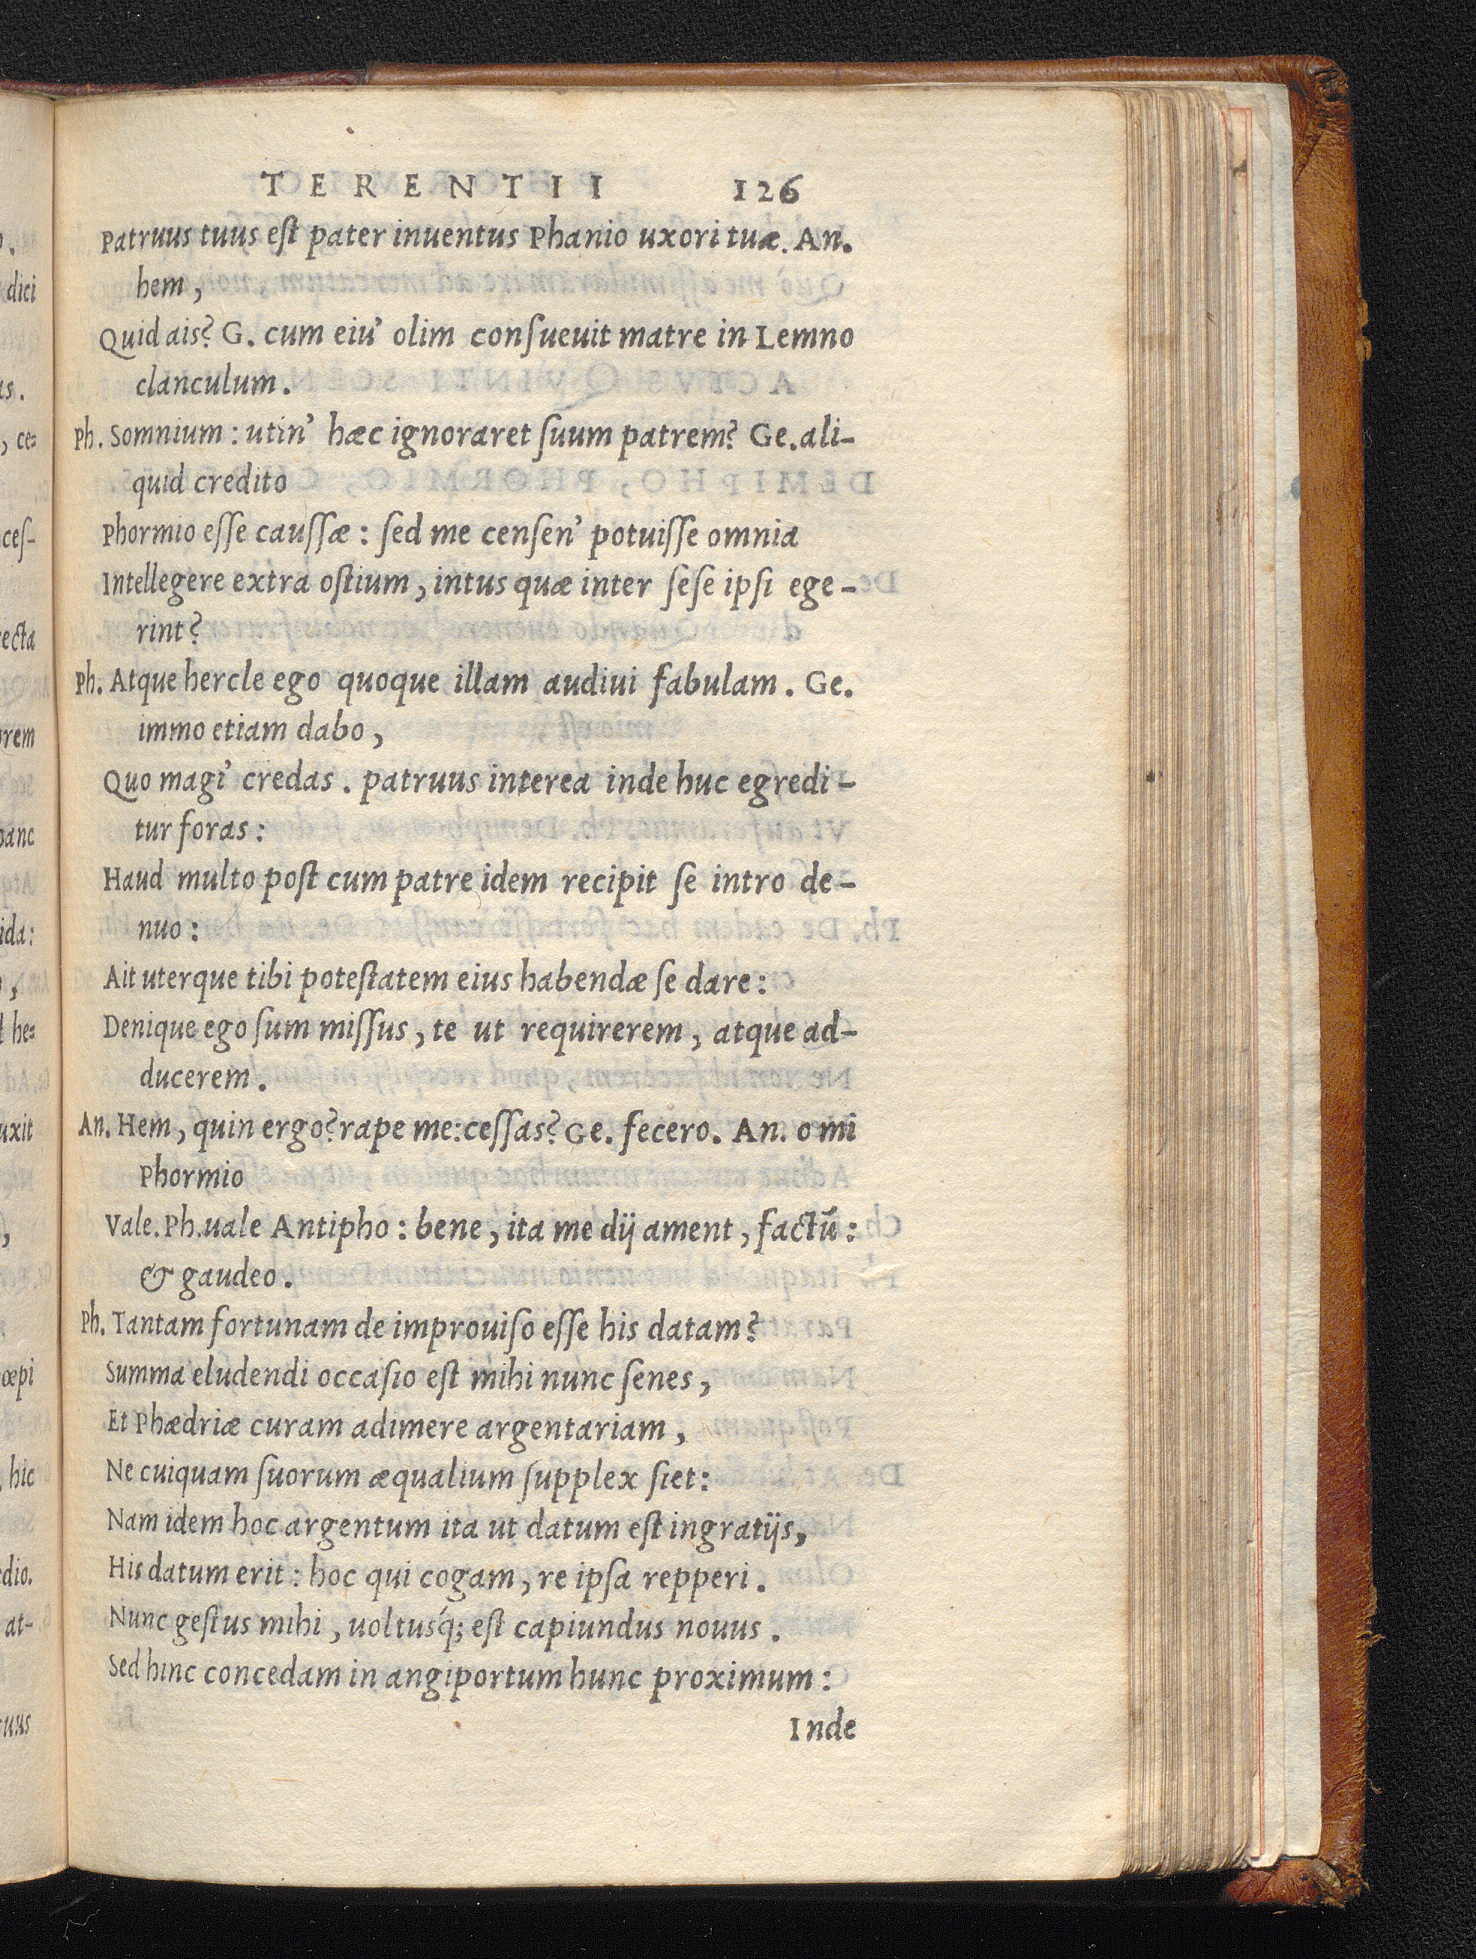 TERENTII 126
Patruus tuus est pater inuentus Phanio uxori tuæ. An.
hem,
Quid ais? G. cum eiu' olim consueuit matre in Lemno
clanculum.
Ph. Somnium: utin' hæc ignoraret suum patrem? Ge. ali-
quid credito
Phormio esse caussæ: sed me censen' potuisse omnia
Intellegere extra ostium, intus quæ inter sese ipsi ege-
rint?
Ph. Atque hercle ego quoque illam audiui fabulam. Ge.
immo etiam dabo,
Quo magi' credas. patruus interea inde huc egredi-
tur foras:
Haud multo post cum patre idem recipit se intro de-
nuo:
Ait uterque tibi potestatem eius habendæ se dare:
Denique ego sum missus, te ut requirerem, atque ad-
ducerem.
An. Hem, quin ergo? rape me: cessas? Ge. fecero. An. o mi
Phormio
Vale. Ph. uale Antipho: bene, ita me dij ament, factū:
& gaudeo.
Ph. Tantam fortunam de improuiso esse his datam?
Summa eludendi occasio est mihi nunc senes,
Et Phædriæ curam adimere argentariam,
Ne cuiquam suorum æqualium supplex siet:
Nam idem hoc argentum ita ut datum est ingratijs,
His datum erit: hoc qui cogam, re ipsa repperi.
Nunc gestus mihi, uoltusq́; est capiundus nouus.
Sed hinc concedam in angiportum hunc proximum:
Inde